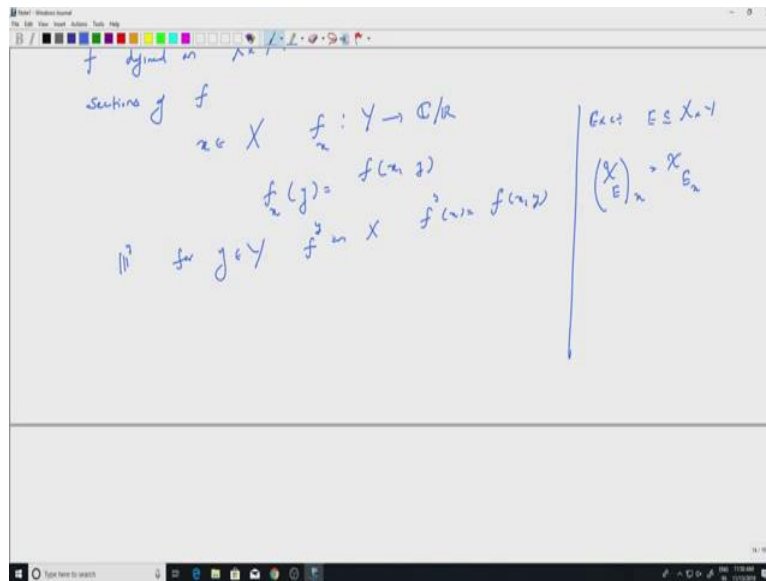 Note1 - Windows Journal
File Edit View Insert Actions Tools Help
f defined on X x Y.
Sections of f
x ∈ X f_x : Y → ℂ/ℝ
f_x (y) = f(x, y)
|||ly for y ∈ Y f^y on X f^y (x) = f(x, y)
Exc: E ⊆ X x Y
(χ_E)_x = χ_{E_x}
Type here to search
ENG 11:58 AM
IN